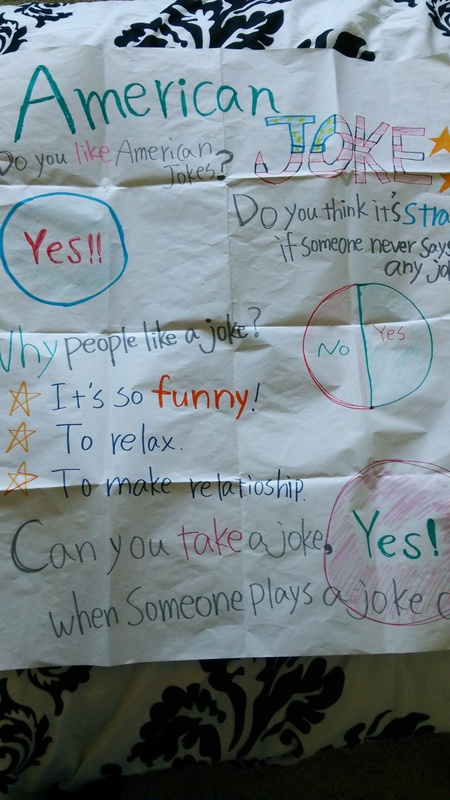 American
JOKE
Do you like American
Jokes?
Yes!!
Do you think it's stra
if someone never says
any jo
No
Yes
Why people like a joke?
It's so funny!
To relax.
To make relatioship.
Can you take a joke,
Yes!
when someone plays a joke o